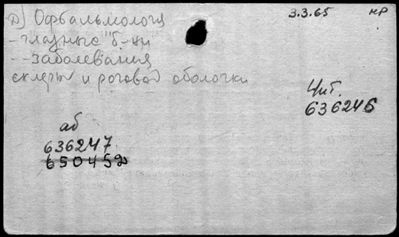 Д) Офтальмология
3.3.65 кр
- глазные б-ни
- - заболевания
склеры и роговой оболочки
Чит.
636246
аб
636247
650452